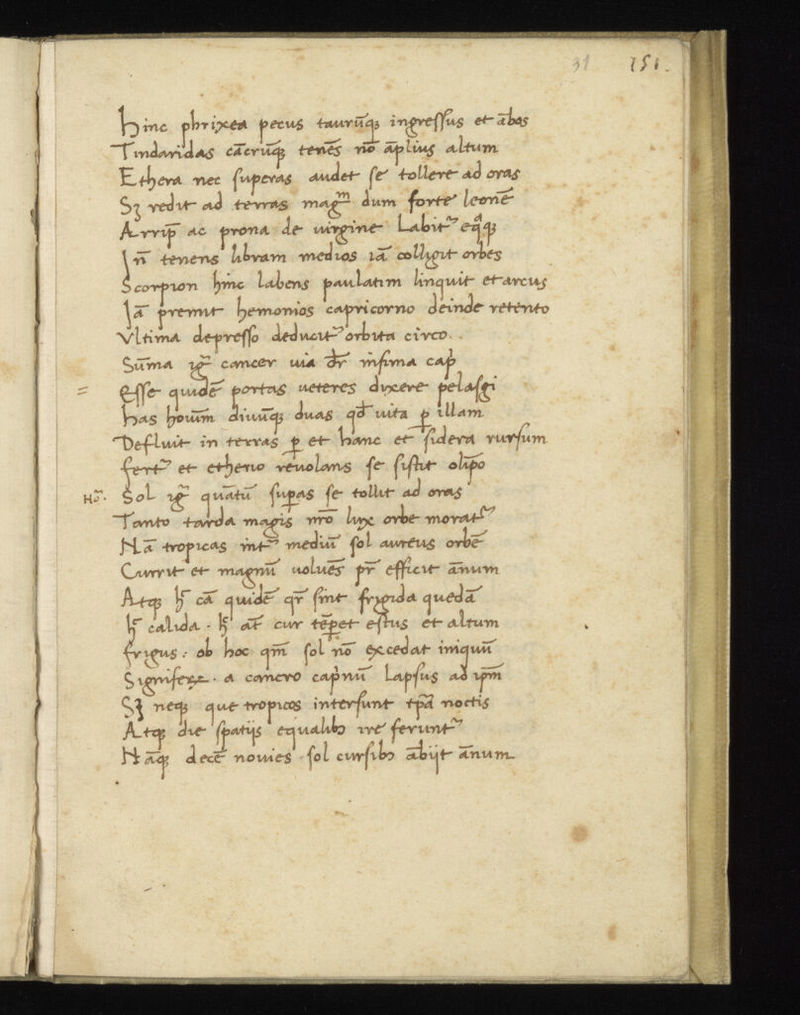 31 151.
Hinc phrixea pecus taurūqꝫ ingressus et ābos
Tindaridas cācrūqꝫ tenēs nō āplius altum
Ethera nec superas audet se tollere ad oras
Sꝫ redit ad terras magᵐ dum forte leonē
Arrip̄ ac prona de uirgine Labitᷣ eqͣqꝫ
In̄ tenens libram medios iā colligit orbes
Scorpion hinc labens paulatim linquit et arcus
Iā premit hemonios capricorno deinde retento
Vltima depresso deducitᷣ orbita circo.
Sūma igᷣ cancer uia dr̄ infima cap̄
Esse quidē portas ueteres dixere pelasgi
has hoīum diuūqꝫ duas qđ uita ꝑ illam
Defluit in terras ꝑ et hanc et sidera rursum
fertᷣ et etherio reuolans se sistit olīpo
Sol igᷣ quātū suꝑas se tollit ad oras
Tanto tarda magis nr̄o lux orbe moratᷣ
Nā tropicas intᷣ mediū sol aureus orbē
Currit et magnū uoluēs pr̄ efficit ānum
Atqꝫ h̄ cā quidē qr̄ sint frigida quedā
h̄ calida. h̄ āt cur tēꝑet estus et altum
frigus: ob hoc qm̄ sol nō excedat iniquū
Signifeꝝ. a cancro capnū Lapsus ad ip̄m
Sꝫ neqꝫ que tropicos intersunt tp̄a noctis
Atqꝫ die spatijs equalibꝫ ire feruntᷣ
Nāqꝫ decē nouies sol cursibꝫ ābijt ānum